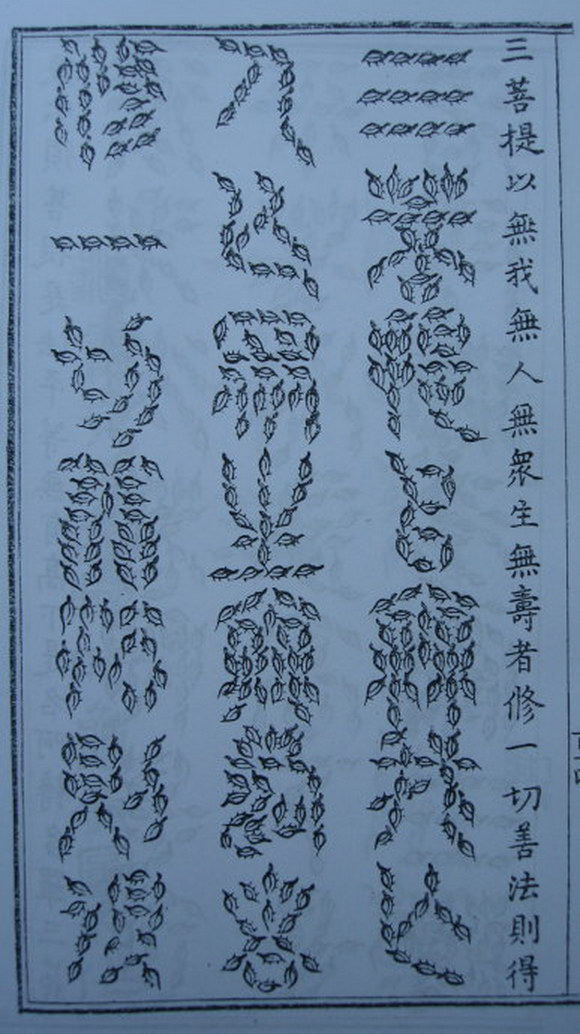 三菩提以無我無人無衆生無壽者修一切善法則得
三菩提以無我無
人無衆生無壽者
修一切善法則得